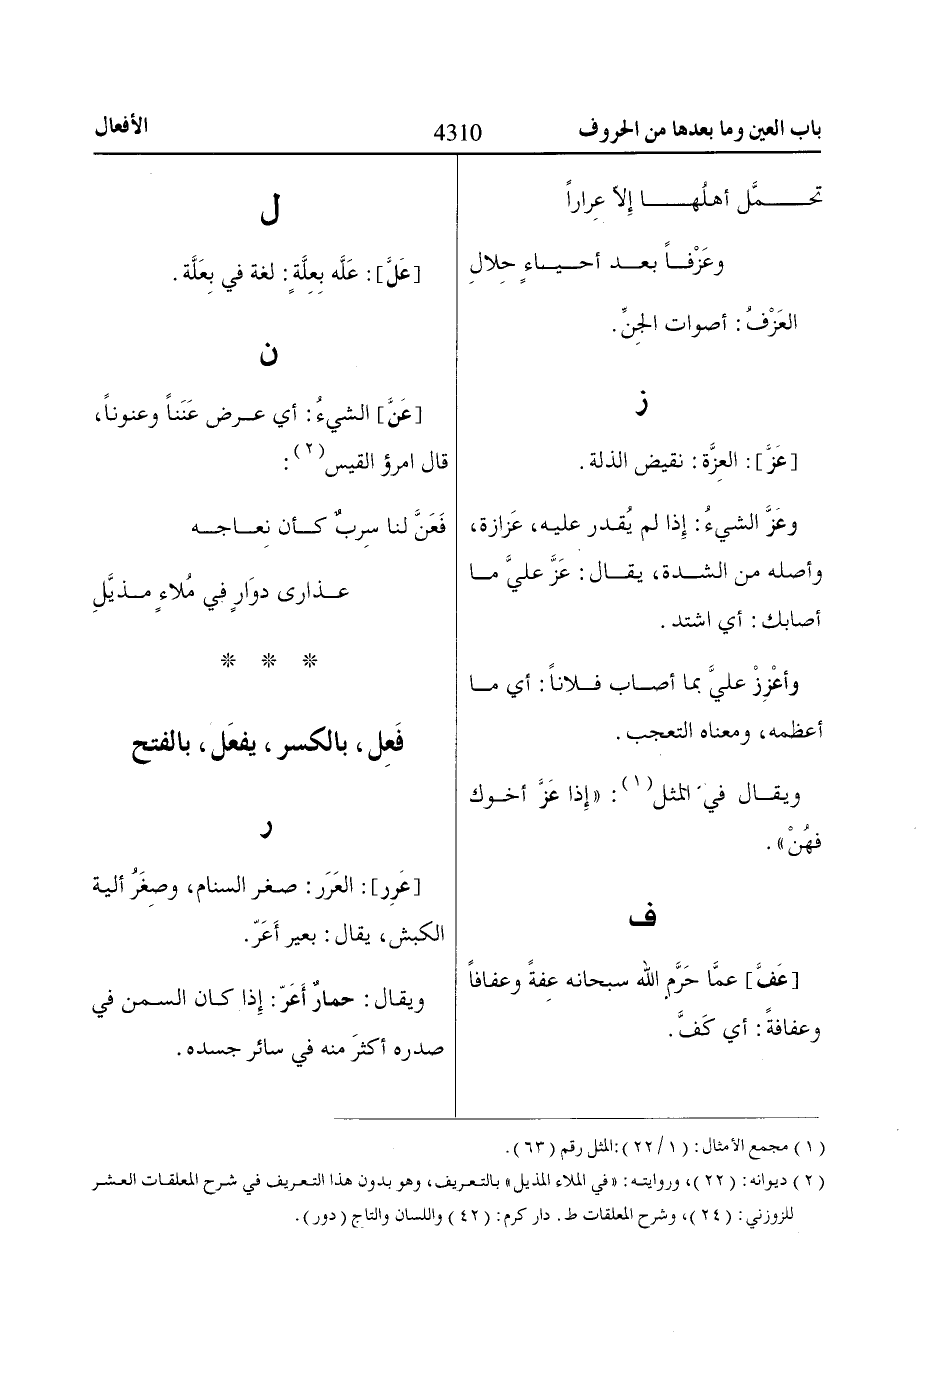 باب العين وما بعدها من الحروف
4310
الأفعال
تحـــــمَّل أهلُهــــــا إِلاَّ عِراراً
وعَزْفــاً بعــد أحيــاءٍ حِلال
العَزْفُ: أصوات الجنِّ.
ز
[عَزَّ]: العزَّة: نقيض الذلة.
وعَزَّ الشيءُ: إِذا لم يُقدر عليه، عَزازة،
وأصله من الشدة، يقال: عَزَّ عليَّ ما
أصابك: أي اشتد.
وأعْزِزْ عليَّ بما أصاب فلاناً: أي ما
أعظمه، ومعناه التعجب.
ويقال في المثل(١): «إِذا عَزَّ أخوك
فهُنْ».
ف
[عَفَّ] عمَّا حَرَّم الله سبحانه عفةً وعفافاً
وعفافةً: أي كَفَّ.
ل
[عَلَّ]: عَلَّه يعِلَّة: لغة في يعَلَّة.
ن
[عَنَّ] الشيءُ: أي عرض عَنَناً وعنوناً،
قال امرؤ القيس(٢):
فَعَنَّ لنا سِربٌ كأن نعاجه
عذارى دوَارٍ في مُلاءٍ مذيَّلِ
* * *
فَعِل، بالكسر، يفعَل، بالفتح
ر
[عَرِر]: العَرَر: صغر السنام، وصِغَرُ ألية
الكبش، يقال: بعير أَعَرّ.
ويقال: حمارٌ أَعَرّ: إِذا كان السمن في
صدره أكثرَ منه في سائر جسده.
(١) مجمع الأمثال: (٢٢/١):المثل رقم (٦٣).
(٢) ديوانه: (٢٢)، وروايته: «في الملاء المذيل» بالتعريف، وهو بدون هذا التعريف في شرح المعلقات العشر
للزوزني: (٢٤)، وشرح المعلقات ط. دار كرم: (٤٢) واللسان والتاج (دور).